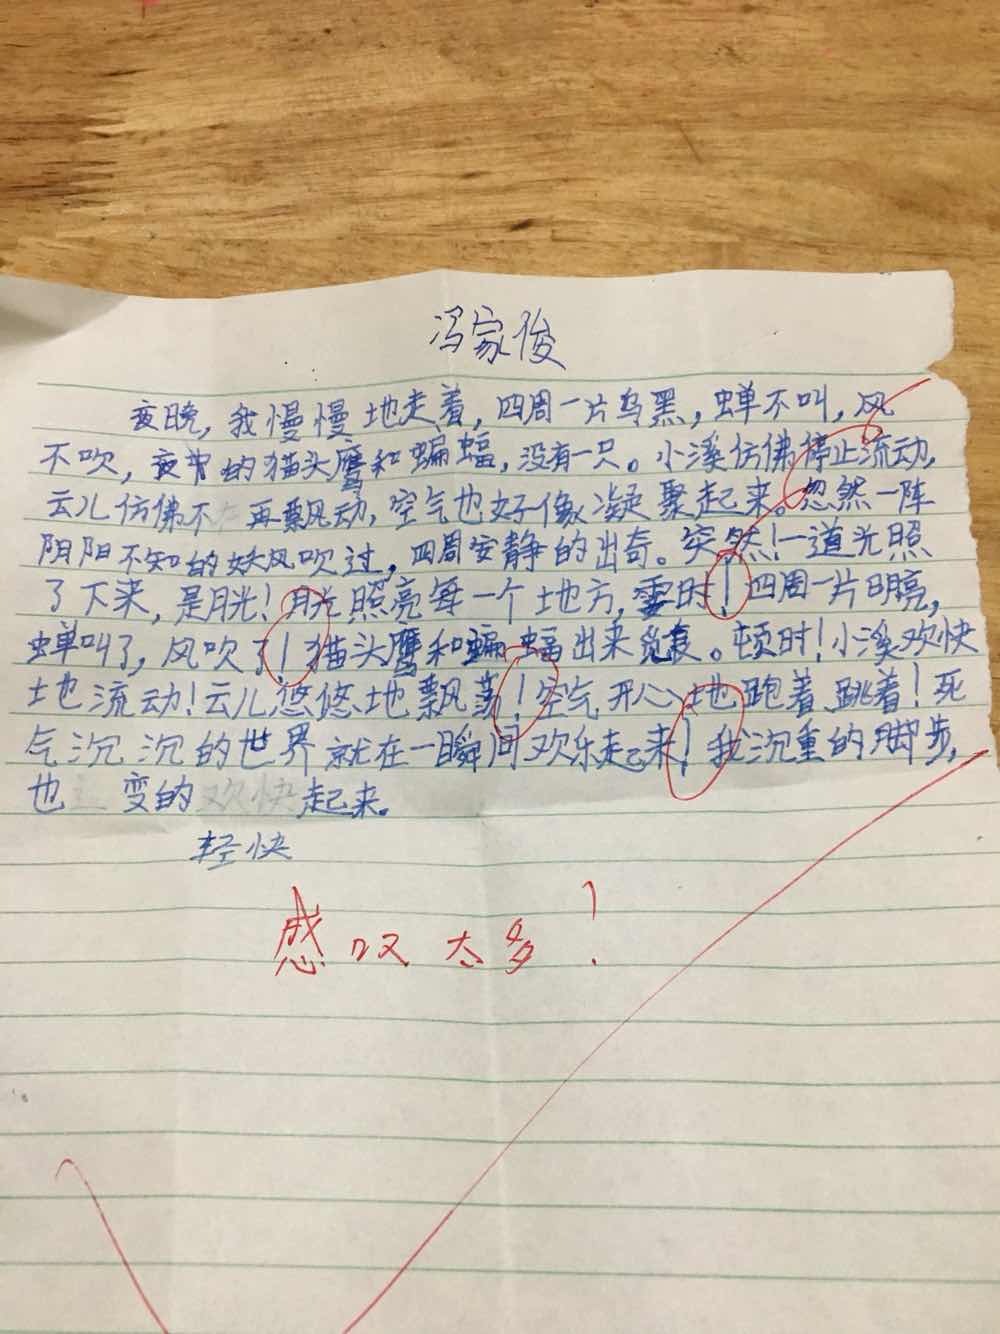 冯家俊
夜晚，我慢慢地走着，四周一片乌黑，蝉不叫，风
不吹，夜节的猫头鹰和蝙蝠，没有一只。小溪仿佛停止流动，
云儿仿佛不再飘动，空气也好像凝聚起来。忽然一阵
阴阳不知的妖风吹过，四周安静的出奇。突然！一道光照
了下来，是月光！月光照亮每一个地方，霎时！四周一片明亮，
蝉叫了，风吹了！猫头鹰和蝙蝠出来觅食。顿时！小溪欢快
地流动！云儿悠悠地飘荡！空气开心地跑着跳着！死
气沉沉的世界就在一瞬间欢乐起来！我沉重的脚步，
也变的欢快起来。
轻快
感叹太多！